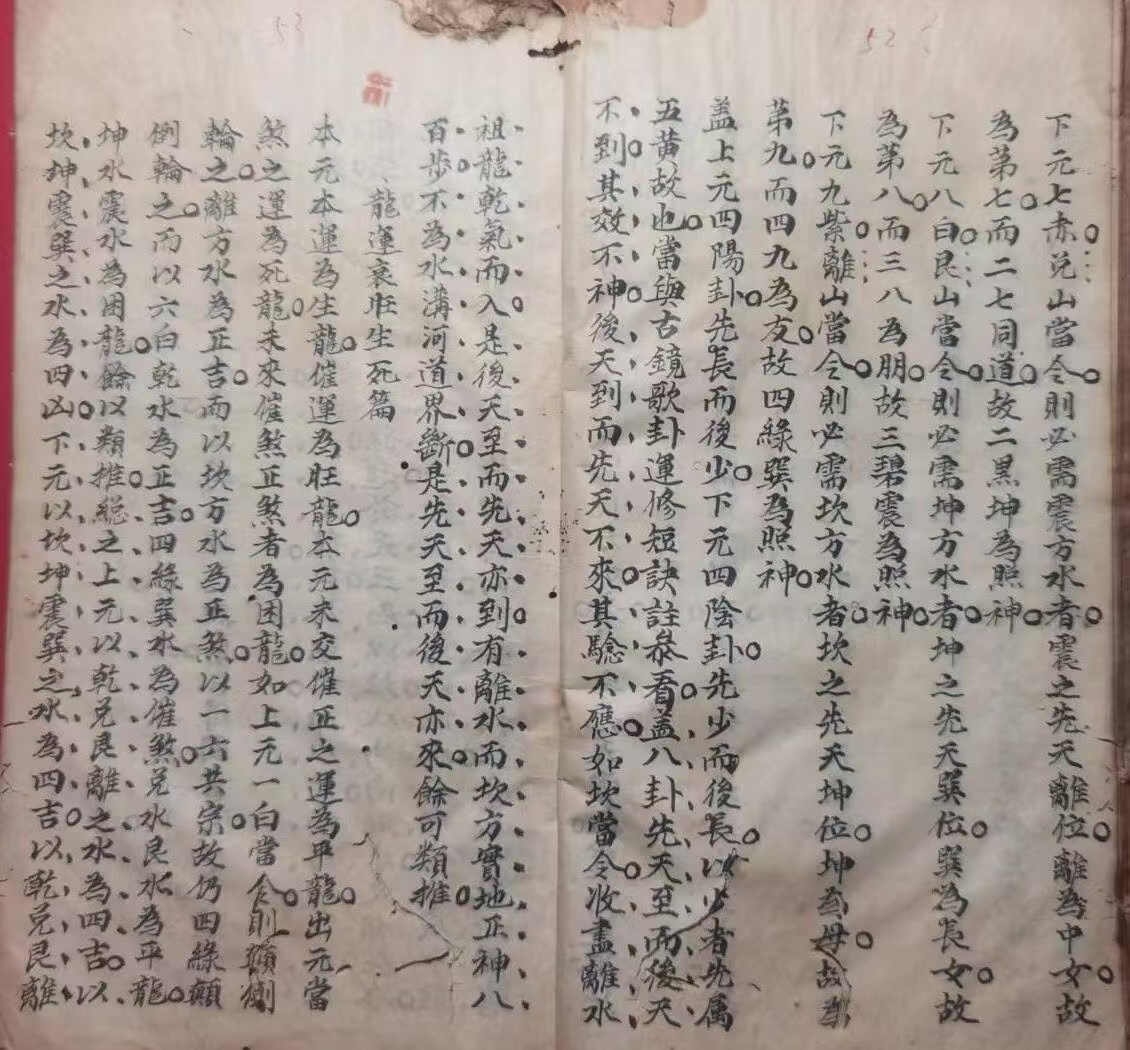 52
下元七赤兑山當令則必需震方水者震之先天離位離為中女故
為第七而二七同道故二黑坤為照神
下元八白艮山當令則必需坤方水者坤之先天巽位巽為長女故
為第八而三八為朋故三碧震為照神
下元九紫離山當令則必需坎方水者坎之先天坤位坤為母故為
第九而四九為友故四綠巽為照神
盖上元四陽卦先長而後少下元四陰卦先少而後長以少者先属
五黄故也當與古鏡歌卦運修短訣註叅看盖八卦先天至而後天
不到其效不神後天到而先天不來其驗不應如坎當令收盡離水
53
祖龍乾氣而入是後天至而先天亦到有離水而坎方實地正神八
百步不為水溝河道界斷是先天至而後天亦來餘可類推
龍運衰旺生死篇
本元本運為生龍催運為旺龍本元未交催正之運為平龍出元當
煞之運為死龍未來催煞正煞者為困龍如上元一白當令則顛倒
輪之離方水為正吉而以坎方水為正煞以一六共宗故仍四綠顛
倒輪之而以六白乾水為正吉四綠巽水為催煞兑水艮水為平龍
坤水震水為困龍餘以類推総之上元以乾兑艮離之水為四吉以
坎坤震巽之水為四凶下元以坎坤震巽之水為四吉以乾兑艮離